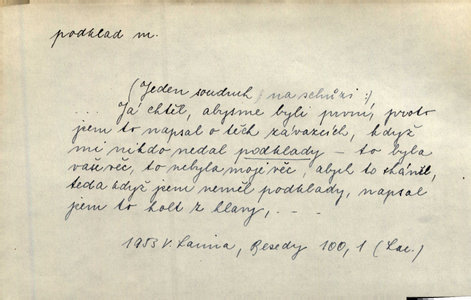 podklad m.
(Jeden soudruh na schůzi:)
... Já chtěl, abysme byli první, proto
jsem to napsal o těch závazcích, když
mi nikdo nedal podklady – to byla
vaše věc, to nebyla moje věc, abych to sháněl,
teda když jsem neměl podklady, napsal
jsem to holt z hlavy, . – –
1953 V. Lacina, Besedy 100, 1 (Lac.)